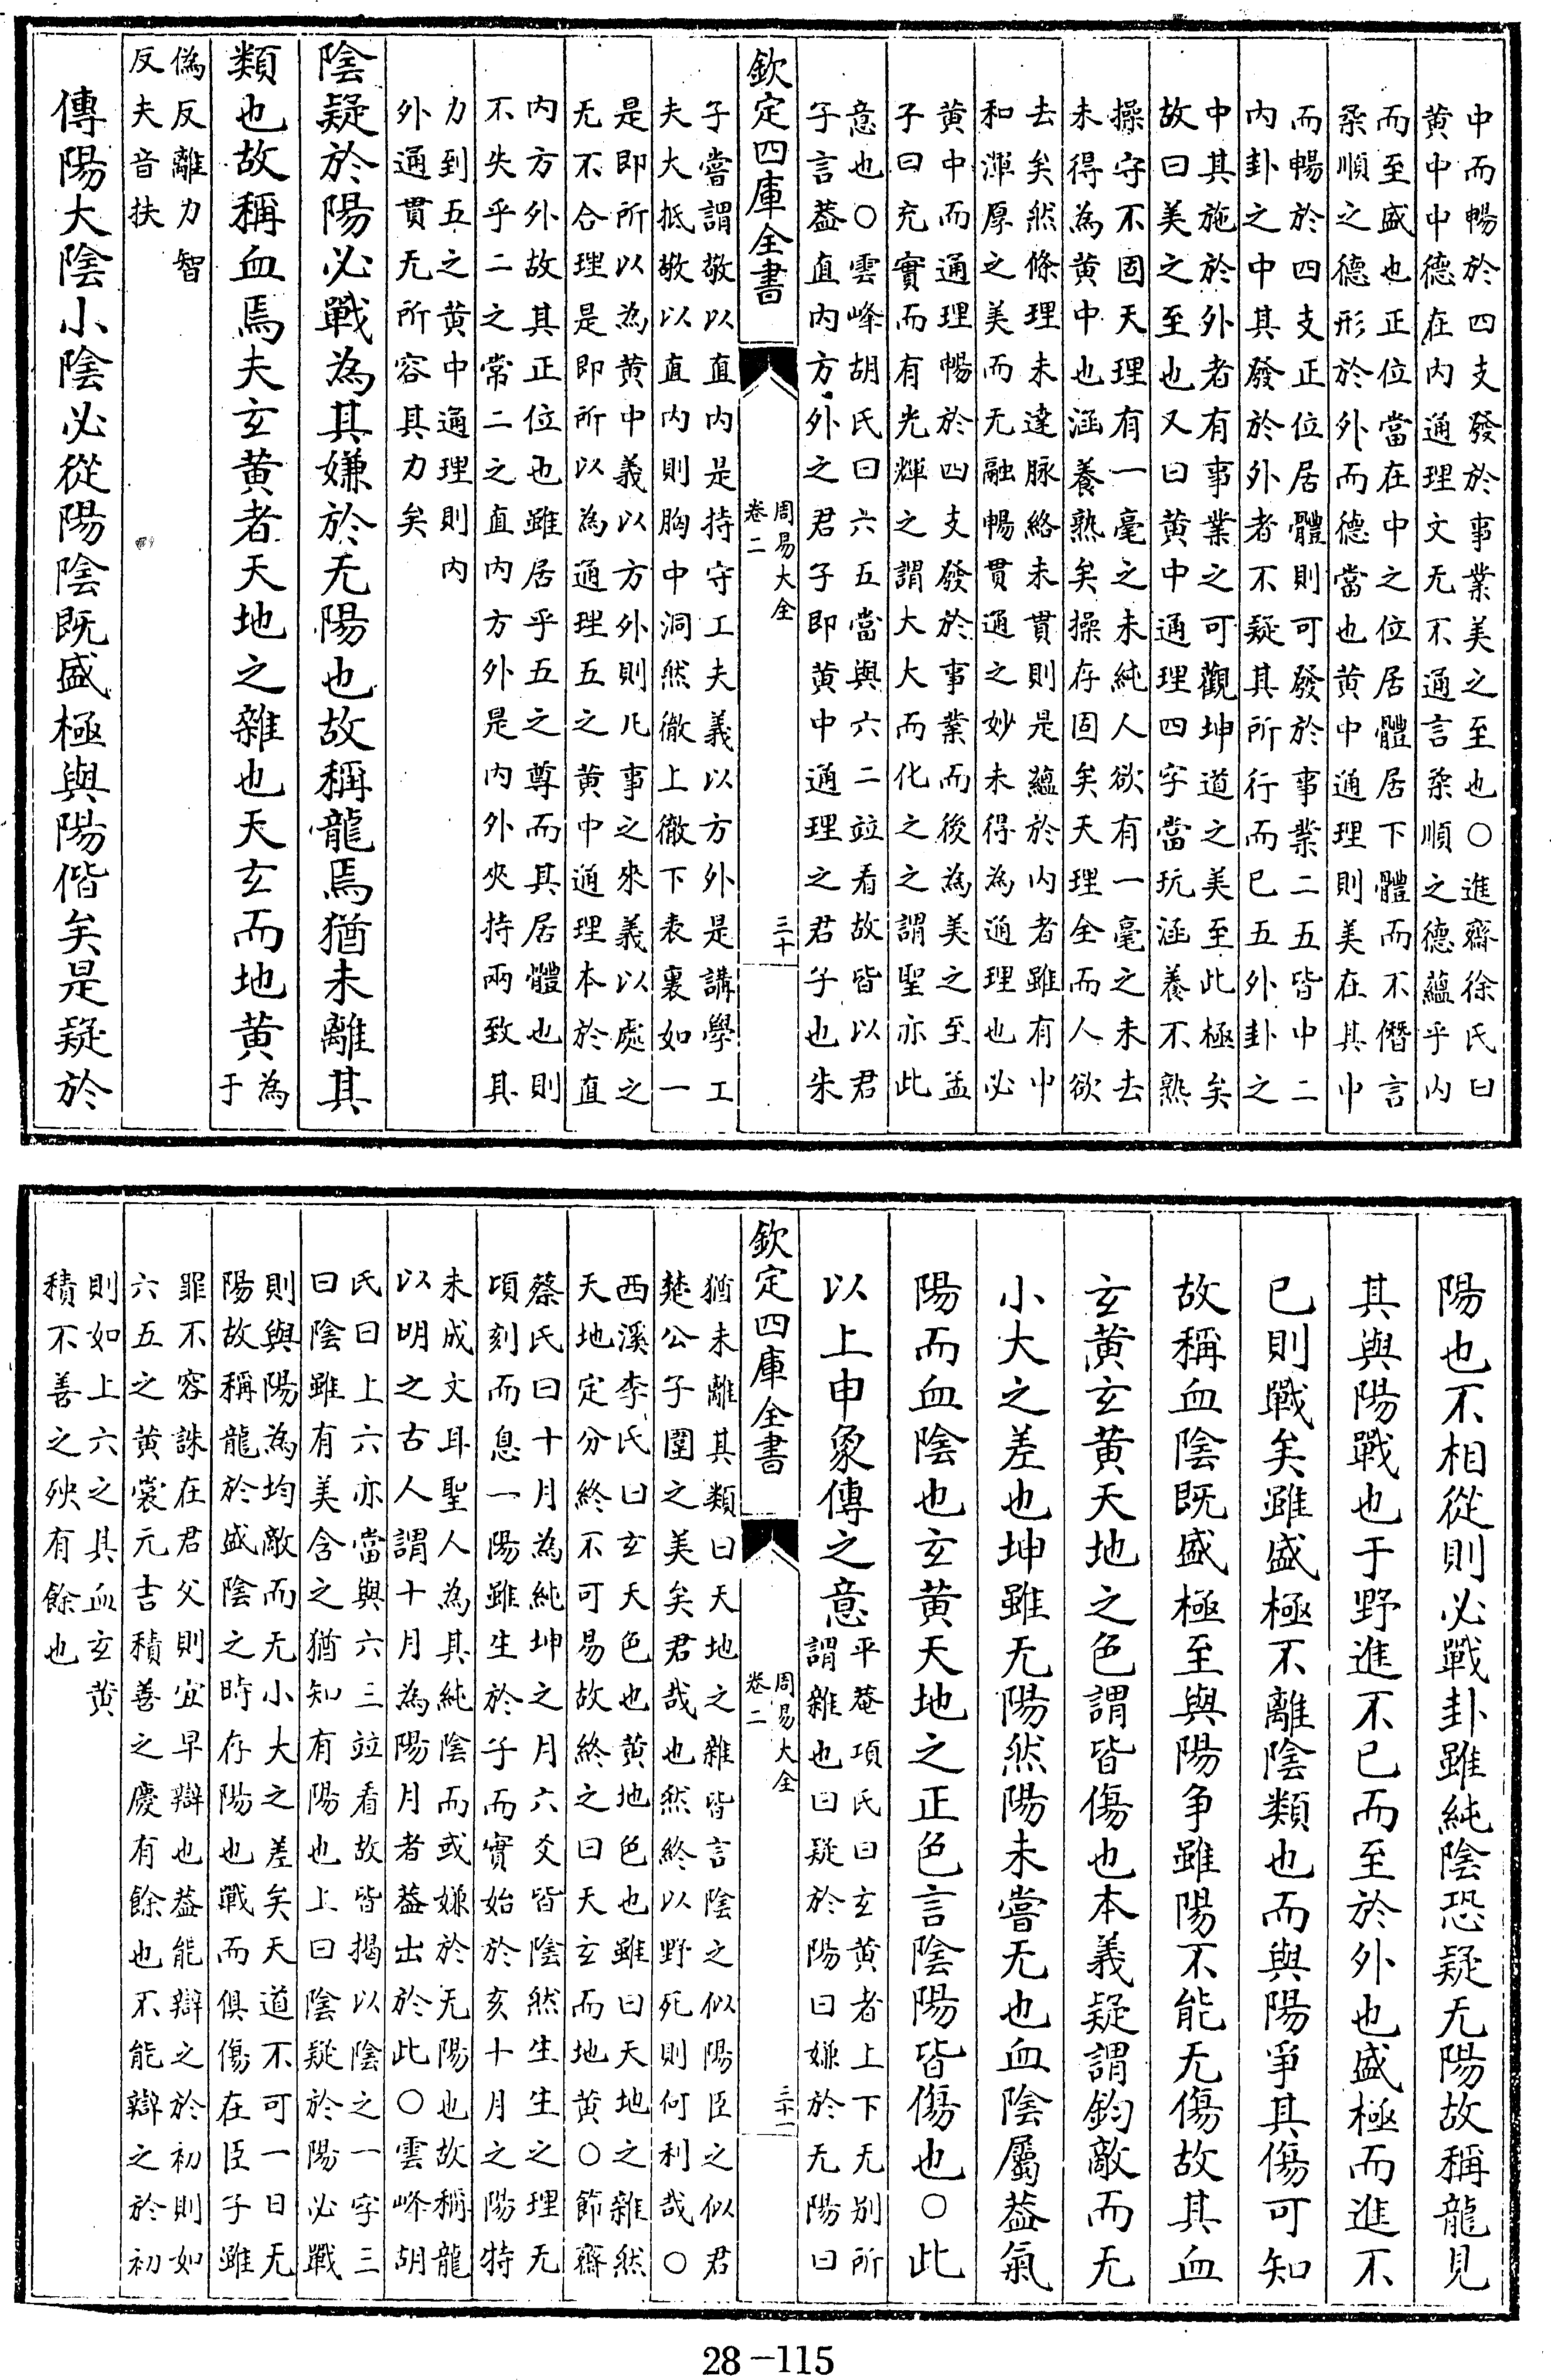 中而暢於四支發於事業美之至也○進齋徐氏曰
黃中中德在內通理文无不通言柔順之德蘊乎內
而至盛也正位當在中之位居體居下體而不僭言
柔順之德形於外而德當也黃中通理則美在其中
而暢於四支正位居體則可發於事業二五皆中二
內卦之中其發於外者不疑其所行而已五外卦之
中其施於外者有事業之可觀坤道之美至此極矣
故曰美之至也又曰黃中通理四字當玩涵養不熟
操守不固天理有一毫之未純人欲有一毫之未去
未得為黃中也涵養熟矣操存固矣天理全而人欲
去矣然條理未達脉絡未貫則是蘊於內者雖有中
和渾厚之美而无融暢貫通之妙未得為通理也必
黃中而通理暢於四支發於事業而後為美之至孟
子曰充實而有光輝之謂大大而化之之謂聖亦此
意也○雲峰胡氏曰六五當與六二竝看故皆以君
子言葢直內方外之君子即黃中通理之君子也朱
欽定四庫全書
周易大全
卷二
三十
子嘗謂敬以直內是持守工夫義以方外是講學工
夫大抵敬以直內則胸中洞然徹上徹下表裏如一
是即所以為黃中義以方外則凡事之來義以處之
无不合理是即所以為通理五之黃中通理本於直
內方外故其正位也雖居乎五之尊而其居體也則
不失乎二之常二之直內方外是內外夾持兩致其
力到五之黃中通理則內
外通貫无所容其力矣
陰疑於陽必戰為其嫌於无陽也故稱龍焉猶未離其
類也故稱血焉夫玄黃者天地之雜也天玄而地黃為
于
偽反離力智
反夫音扶
傳陽大陰小陰必從陽陰既盛極與陽偕矣是疑於
陽也不相從則必戰卦雖純陰恐疑无陽故稱龍見
其與陽戰也于野進不已而至於外也盛極而進不
已則戰矣雖盛極不離陰類也而與陽爭其傷可知
故稱血陰既盛極至與陽爭雖陽不能无傷故其血
玄黃玄黃天地之色謂皆傷也本義疑謂鈞敵而无
小大之差也坤雖无陽然陽未嘗无也血陰屬葢氣
陽而血陰也玄黃天地之正色言陰陽皆傷也○此
以上申象傳之意平菴項氏曰玄黃者上下无別所
謂雜也曰疑於陽曰嫌於无陽曰
欽定四庫全書
周易大全
卷二
三十一
猶未離其類曰天地之雜皆言陰之似陽臣之似君
楚公子圍之美矣君哉也然終以野死則何利哉○
西溪李氏曰玄天色也黃地色也雖曰天地之雜然
天地定分終不可易故終之曰天玄而地黃○節齋
蔡氏曰十月為純坤之月六爻皆陰然生生之理无
頃刻而息一陽雖生於子而實始於亥十月之陽特
未成文耳聖人為其純陰而或嫌於无陽也故稱龍
以明之古人謂十月為陽月者葢出於此○雲峰胡
氏曰上六亦當與六三竝看故皆揭以陰之一字三
曰陰雖有美含之猶知有陽也上曰陰疑於陽必戰
則與陽為均敵而无小大之差矣天道不可一日无
陽故稱龍於盛陰之時存陽也戰而俱傷在臣子雖
罪不容誅在君父則宜早辯也葢能辯之於初則如
六五之黃裳元吉積善之慶有餘也不能辯之於初
則如上六之其血玄黃
積不善之殃有餘也
28-115